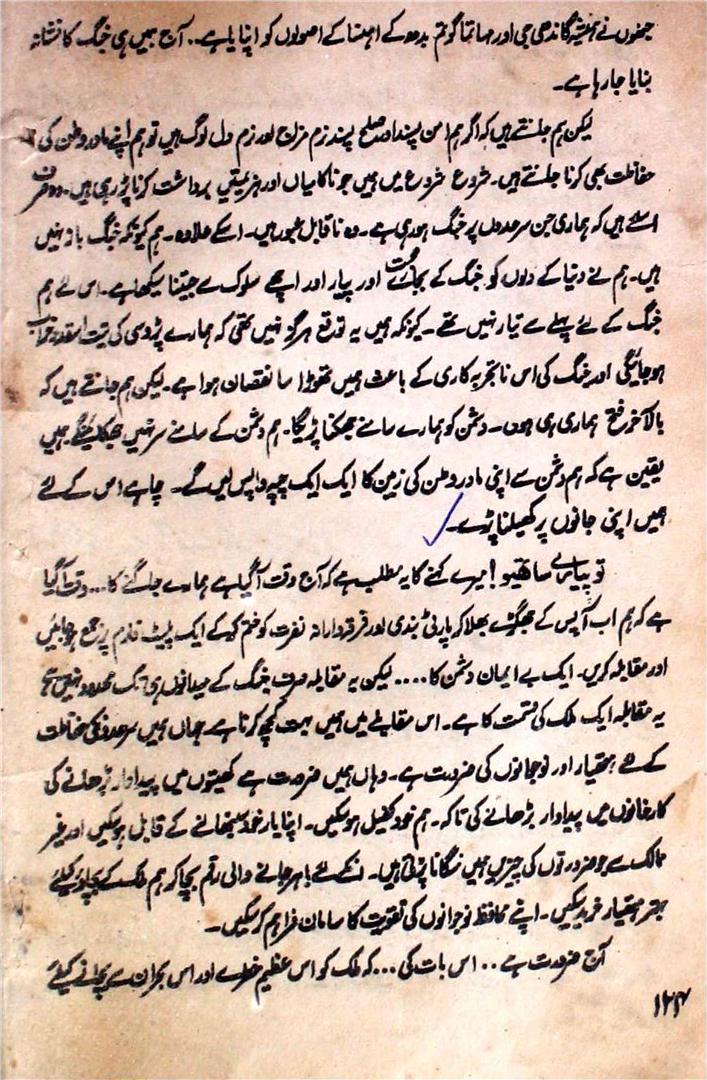 جنھوں نے ہمیشہ گاندھی جی اور مہاتما گوتم بدھ کے اہنسا کے اصولوں کو اپنایا ہے .. آج ہمیں ہی جنگ کا نشانہ
بنایا جا رہا ہے۔
لیکن ہم جانتے ہیں کہ اگر ہم امن پسند اور صلح پسند نرم مزاج اور نرم دل لوگ ہیں تو ہم اپنے مادر وطن کی
حفاظت بھی کرنا جانتے ہیں۔ شروع شروع میں ہمیں جو ناکامیاں اور ہزیمتیں برداشت کرنا پڑ رہی ہیں۔ وہ صرف
اسلئے ہیں کہ ہماری جن سرحدوں پر جنگ ہو رہی ہے۔ وہ ناقابل عبور ہیں۔ اسکے علاوہ۔ ہم کیونکہ جنگ باز نہیں
ہیں۔ ہم نے دنیا کے دلوں کو جنگ کے بجائے محبت اور پیار اور اچھے سلوک سے جیتنا سیکھا ہے۔ اس لئے ہم
جنگ کے لئے پہلے سے تیار نہیں تھے۔ کیونکہ ہمیں یہ توقع ہرگز نہیں تھی کہ ہمارے پڑوسی کی نیت اسقدر خراب
ہو جائیگی اور جنگ کی اس ناتجربہ کاری کے باعث ہمیں تھوڑا سا نقصان ہوا ہے۔ لیکن ہم جانتے ہیں کہ
بالآخر فتح ہماری ہی ہوگی۔ دشمن کو ہمارے سامنے جھکنا پڑیگا۔ ہم دشمن کے سامنے سر نہیں جھکائینگے ہمیں
یقین ہے کہ ہم دشمن سے اپنی مادر وطن کی زمین کا ایک ایک چپہ واپس لیں گے۔ چاہے اس کے لئے
ہمیں اپنی جانوں پر کھیلنا پڑے۔
تو پیارے ساتھیو! میرے کہنے کا یہ مطلب ہے کہ آج وقت آگیا ہے ہمارے جاگنے کا... وقت آگیا
ہے کہ ہم اب آپس کے جھگڑے بھلا کر پارٹی بندی اور فرقہ وارانہ نفرت کو ختم کر کے ایک پلیٹ فارم پر جمع ہو جائیں
اور مقابلہ کریں۔ ایک بے ایمان دشمن کا .... لیکن یہ مقابلہ صرف جنگ کے میدانوں ہی تک محدود نہیں ہے
یہ مقابلہ ایک ملک کی قسمت کا ہے۔ اس مقابلے میں ہمیں بہت کچھ کرنا ہے جہاں ہمیں سرحدوں کی حفاظت
کے لئے ہتھیار اور نوجوانوں کی ضرورت ہے۔ وہاں ہمیں ضرورت ہے کھیتوں میں پیداوار بڑھانے کی
کارخانوں میں پیداوار بڑھانے کی تاکہ۔ ہم خود کفیل ہو سکیں۔ اپنا بار خود سنبھالنے کے قابل ہو سکیں اور غیر
ممالک سے جو ضرورتوں کی چیزیں ہمیں منگانا پڑتی ہیں۔ انکے لئے باہر جانے والی رقم بچا کر ہم ملک کے بچاؤ کیلئے
بہتر ہتھیار خرید سکیں۔ اپنے محافظ نوجوانوں کی تقویت کا سامان فراہم کر سکیں۔
آج ضرورت ہے .. اس بات کی ... کہ ملک کو اس عظیم خطرے اور اس بحران سے بچانے کیلئے
۱۲۴